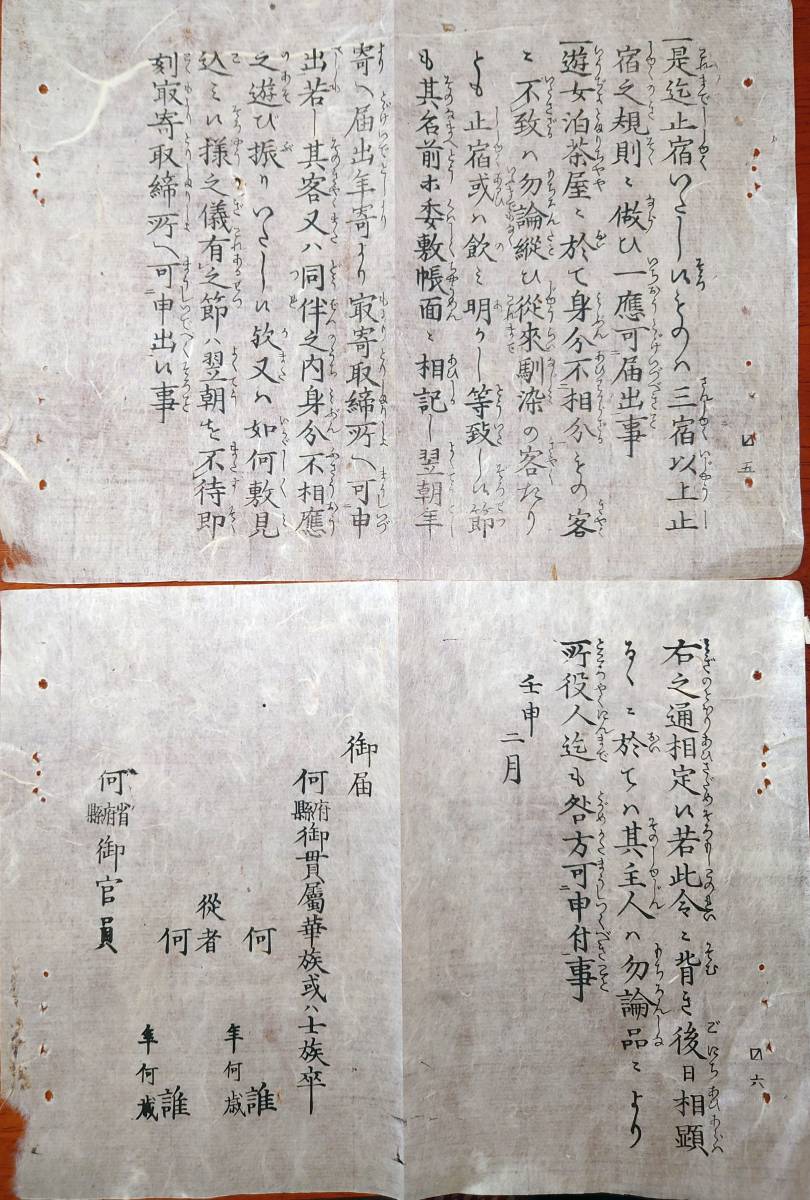 一是迄止宿いたし候ものハ三宿以上止
宿之規則ニ倣ひ一應可届出事
一遊女泊茶屋ニ於て身分不相分ものの客
ニ不致ハ勿論縦ひ從來馴染の客たり
とも止宿或ハ飲ミ明かし等致し候節
も其名前ホ委敷帳面ニ相記し翌朝年
寄へ届出年寄より最寄取締所へ可申
出若し其客又ハ同伴之内身分不相應
之遊ひ振りいたし候欤又ハ如何敷見
込ミ候様之儀有之節ハ翌朝を不待即
刻最寄取締所へ可申出候事
五
右之通相定候若此令ニ背き後日相顕
るゝニ於てハ其主人ハ勿論品ニより
所役人迄も咎方可申付事
壬申二月
六
御届
何府縣御貫屬華族或ハ士族卒
何 誰
年何歳
從者
何 誰
年何歳
何省府縣御官員